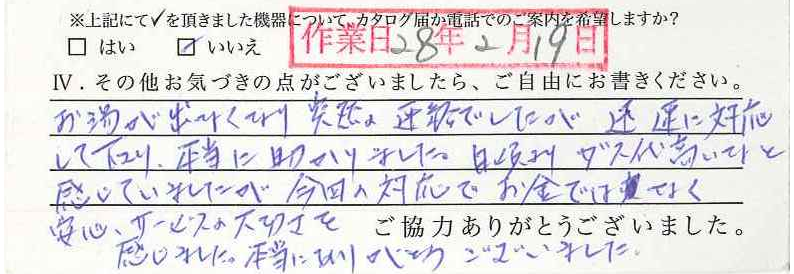 ※上記にて✓を頂きました機器について、カタログ届か電話でのご案内を希望しますか?
□ はい ☑ いいえ 作業日28年2月19日
Ⅳ．その他お気づきの点がございましたら、ご自由にお書きください。
お湯が出なくなり 突然の連絡でしたが 迅速に対応
して下さり、本当に助かりました。日頃より ガス代高いなと
感じていましたが 今回の対応で お金では なく
安心、サービスの大切さを ご協力ありがとうございました。
感じました。本当にありがとう ございました。